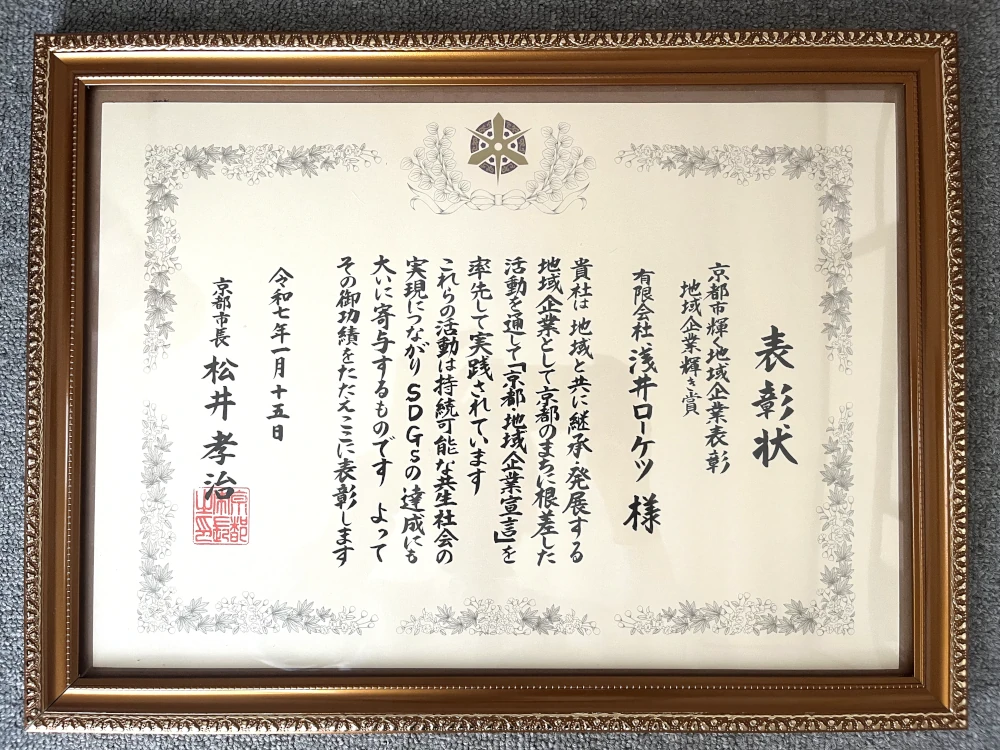 表彰状
京都市輝く地域企業表彰
地域企業輝き賞
有限会社 浅井ローケツ 様
貴社は 地域と共に継承・発展する
地域企業として京都のまちに根差した
活動を通して「京都・地域企業宣言」を
率先して実践されています
これらの活動は持続可能な共生社会の
実現につながり SDGsの達成にも
大いに寄与するものです よって
その御功績をたたえここに表彰します
令和七年一月十五日
京都市長 松井孝治
京都市長之印